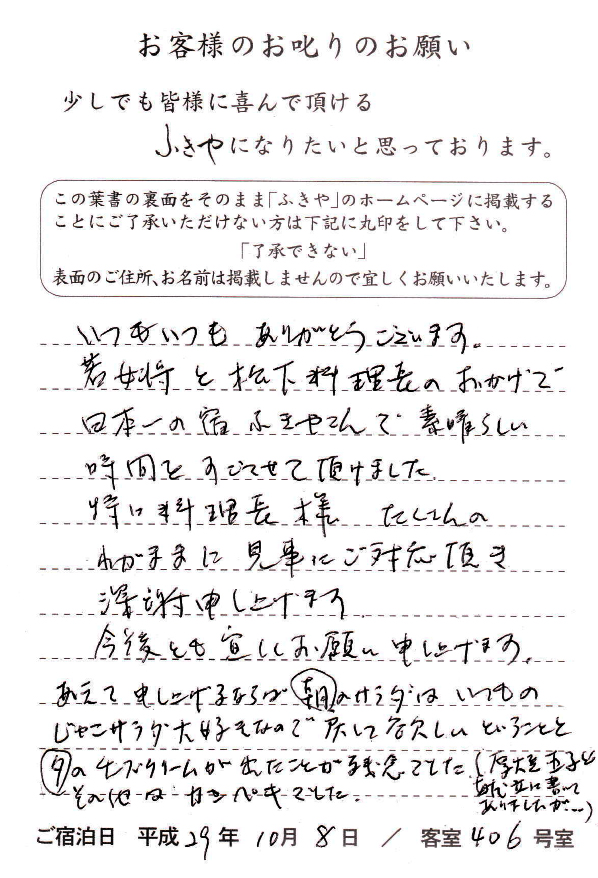 お客様のお叱りのお願い
少しでも皆様に喜んで頂ける
ふきやになりたいと思っております。
この葉書の裏面をそのまま「ふきや」のホームページに掲載する
ことにご了承いただけない方は下記に丸印をして下さい。
「了承できない」
表面のご住所、お名前は掲載しませんので宜しくお願いいたします。
いつもいつも ありがとうございます。
若女将と松下料理長のおかげで
日本一の宿ふきやさんで素晴らしい
時間をすごさせて頂けました
特に料理長様 たくさんの
わがままに見事にご対応頂き
深謝申し上げます
今後とも宜しくお願い申し上げます。
あえて申し上げるならば朝のサラダはいつもの
じゃこサラダ大好きなので戻して欲しいということと
夕のチーズクリームが出たことが残念でした(
に書いて
ありましたが...)
その他はカンペキでした。
ご宿泊日 平成29年10月8日 / 客室406号室